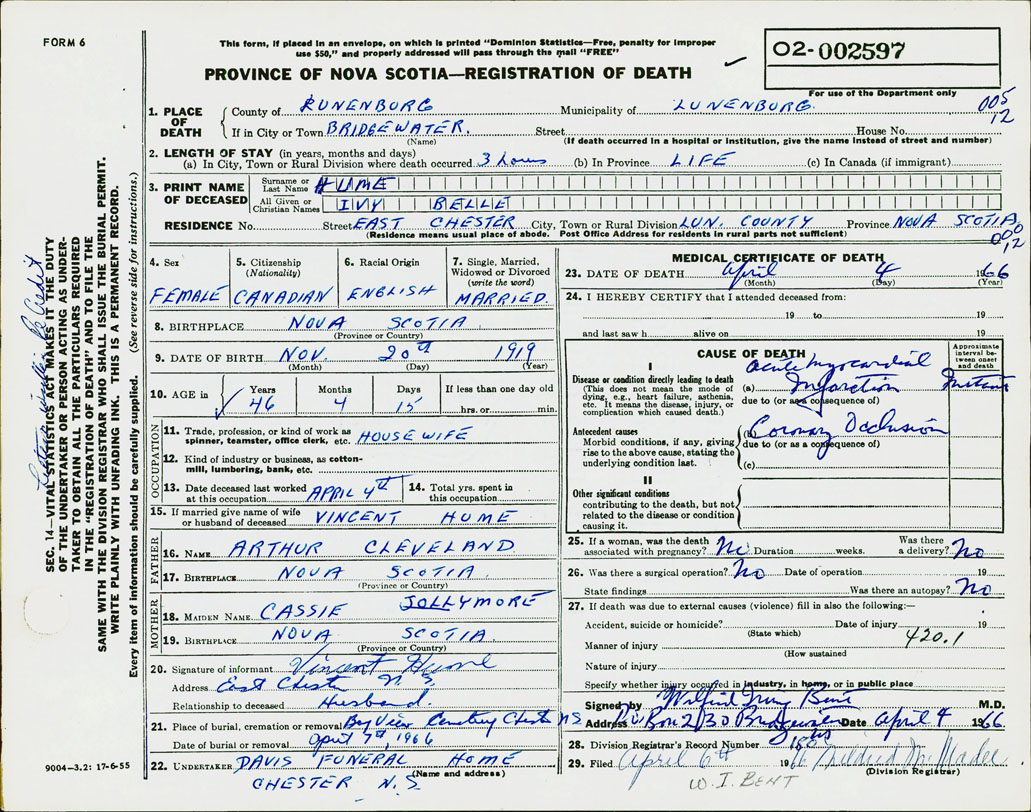 FORM 6
This form, if placed in an envelope, on which is printed "Dominion Statistics—Free, penalty for improper
use $50," and properly addressed will pass through the mail "FREE"
PROVINCE OF NOVA SCOTIA—REGISTRATION OF DEATH
02-002597
For use of the Department only
005
12
1. PLACE OF DEATH County of LUNENBURG Municipality of LUNENBURG.
If in City or Town BRIDGEWATER. Street House No.
(Name) (If death occurred in a hospital or institution, give the name instead of street and number)
2. LENGTH OF STAY (in years, months and days)
(a) In City, Town or Rural Division where death occurred 3 hours (b) In Province LIFE (c) In Canada (if immigrant)
3. PRINT NAME OF DECEASED Surname or Last Name HUME
All Given or Christian Names IVY BELLE
RESIDENCE No. Street EAST CHESTER City, Town or Rural Division LUN. COUNTY Province NOVA SCOTIA
(Residence means usual place of abode. Post Office Address for residents in rural parts not sufficient)
000
12
4. Sex FEMALE
5. Citizenship (Nationality) CANADIAN
6. Racial Origin ENGLISH
7. Single, Married, Widowed or Divorced (write the word) MARRIED.
8. BIRTHPLACE NOVA SCOTIA
(Province or Country)
9. DATE OF BIRTH NOV. 20th 1919
(Month) (Day) (Year)
10. AGE in Years 46 Months 4 Days 15 If less than one day old hrs. or min.
OCCUPATION
11. Trade, profession, or kind of work as
spinner, teamster, office clerk, etc. HOUSEWIFE
12. Kind of industry or business, as cotton-
mill, lumbering, bank, etc.
13. Date deceased last worked at this occupation APRIL 4th 14. Total yrs. spent in this occupation
15. If married give name of wife
or husband of deceased VINCENT HUME
FATHER
16. NAME ARTHUR CLEVELAND
17. BIRTHPLACE NOVA SCOTIA
(Province or Country)
MOTHER
18. MAIDEN NAME CASSIE JOLLYMORE
19. BIRTHPLACE NOVA SCOTIA.
(Province or Country)
20. Signature of informant Vincent Hume
Address East Chester N.S.
Relationship to deceased Husband.
21. Place of burial, cremation or removal Bay View Cemetery Chester N.S
Date of burial or removal April 7th, 1966
22. UNDERTAKER DAVIS FUNERAL HOME
(Name and address)
CHESTER N.S.
MEDICAL CERTIFICATE OF DEATH
23. DATE OF DEATH April 4 1966
(Month) (Day) (Year)
24. I HEREBY CERTIFY that I attended deceased from:
19 to 19
and last saw h alive on 19
CAUSE OF DEATH
Approximate interval between onset and death
I
Disease or condition directly leading to death
(This does not mean the mode of
dying, e.g., heart failure, asthenia,
etc. It means the disease, injury, or
complication which caused death.)
(a) Acute Myocardial
Infarction Instant
due to (or as a consequence of)
Antecedent causes
Morbid conditions, if any, giving
rise to the above cause, stating the
underlying condition last.
(b) Coronary Occlusion
due to (or as a consequence of)
(c)
II
Other significant conditions
contributing to the death, but not
related to the disease or condition
causing it.
25. If a woman, was the death
associated with pregnancy? No Duration weeks. Was there a delivery? No
26. Was there a surgical operation? No Date of operation 19
State findings Was there an autopsy? No
27. If death was due to external causes (violence) fill in also the following:—
Accident, suicide or homicide? Date of injury 19
(State which)
Manner of injury 420.1
(How sustained
Nature of injury
Specify whether injury occurred in industry, in home, or in public place
Signed by Wilfrid Irving Bent M.D.
Address Box 2130 Bridgewater NS Date April 4 1966
28. Division Registrar's Record Number 180
29. Filed April 6th 1966 Mildred McMadee
(Division Registrar)
W.I. BENT
SEC. 14—VITAL STATISTICS ACT MAKES IT THE DUTY
OF THE UNDERTAKER OR PERSON ACTING AS UNDER-
TAKER TO OBTAIN ALL THE PARTICULARS REQUIRED
IN THE "REGISTRATION OF DEATH" AND TO FILE THE
SAME WITH THE DIVISION REGISTRAR WHO SHALL ISSUE THE BURIAL PERMIT.
WRITE PLAINLY WITH UNFADING INK. THIS IS A PERMANENT RECORD.
Every item of information should be carefully supplied. (See reverse side for instructions.)
9004—3.2: 17-6-55